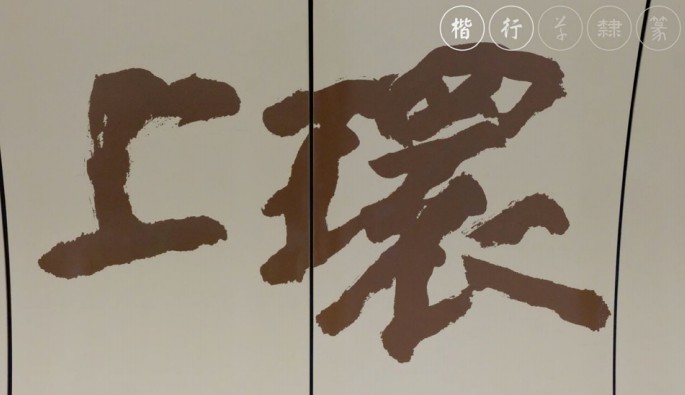 楷行草隸篆
上環